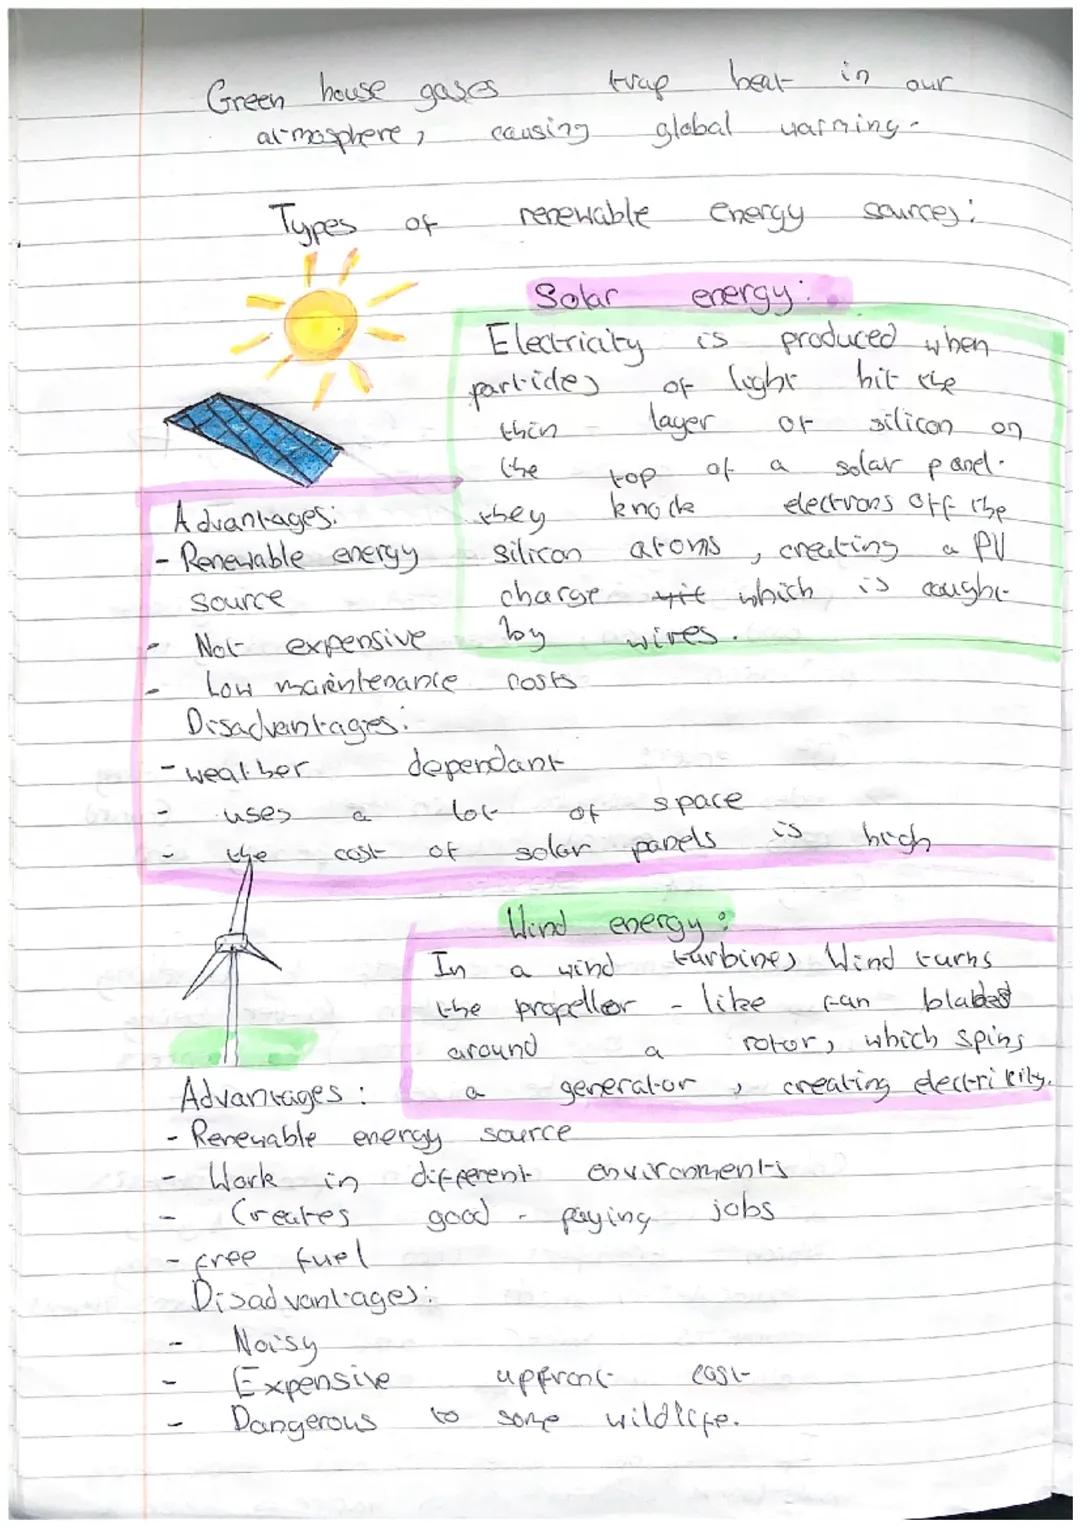 Green house gases trap heat in our
atmosphere, causing global warming.
Types of renewable energy sources:
Solar energy:
Electricity is produced when
particles of light hit the
thin layer of silicon on
the top of a solar panel.
they knock electrons off the
silicon atoms, creating a PV
charge which is caught
by wires.
Advantages:
- Renewable energy
source
- Not expensive
- Low maintenance costs
Disadvantages:
- weather dependant
- uses a lot of space
- the cost of solar panels is high
Wind energy:
In a wind turbines Wind turns
the propellor - like fan blades
around a rotor, which spins
a generator, creating electricity.
Advantages:
- Renewable energy source
- Work in different environments
- Creates good-paying jobs
- free fuel
Disadvantages:
- Noisy
- Expensive upfront cost
- Dangerous to some wildlife.